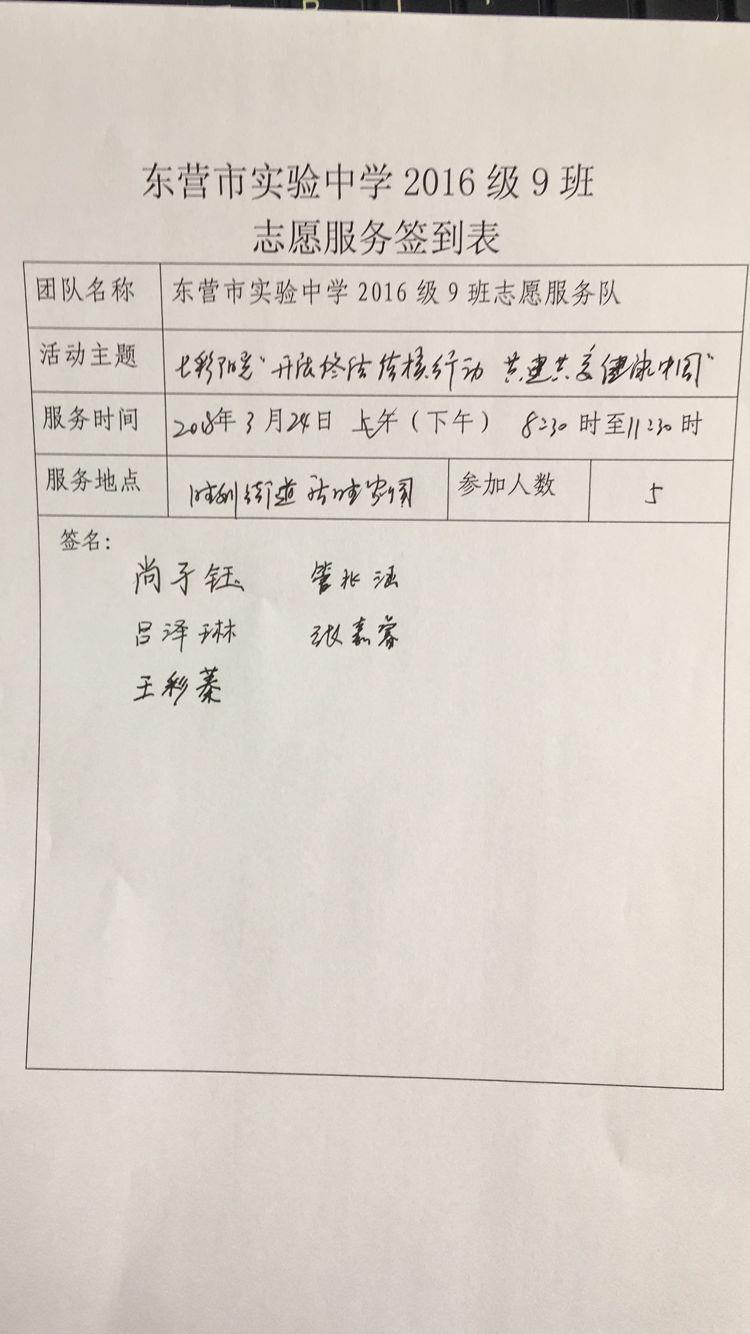 东营市实验中学 2016 级 9 班
志愿服务签到表
团队名称 东营市实验中学 2016 级 9 班志愿服务队
活动主题 七彩阳光“开展终结结核行动 共建共享健康中国”
服务时间 2018年 3 月 24 日 上午（下午） 8:30 时至 11:30 时
服务地点 街道 家园 参加人数 5
签名：
尚子钰 管兆涵
吕泽琳 张嘉睿
王彩蓁